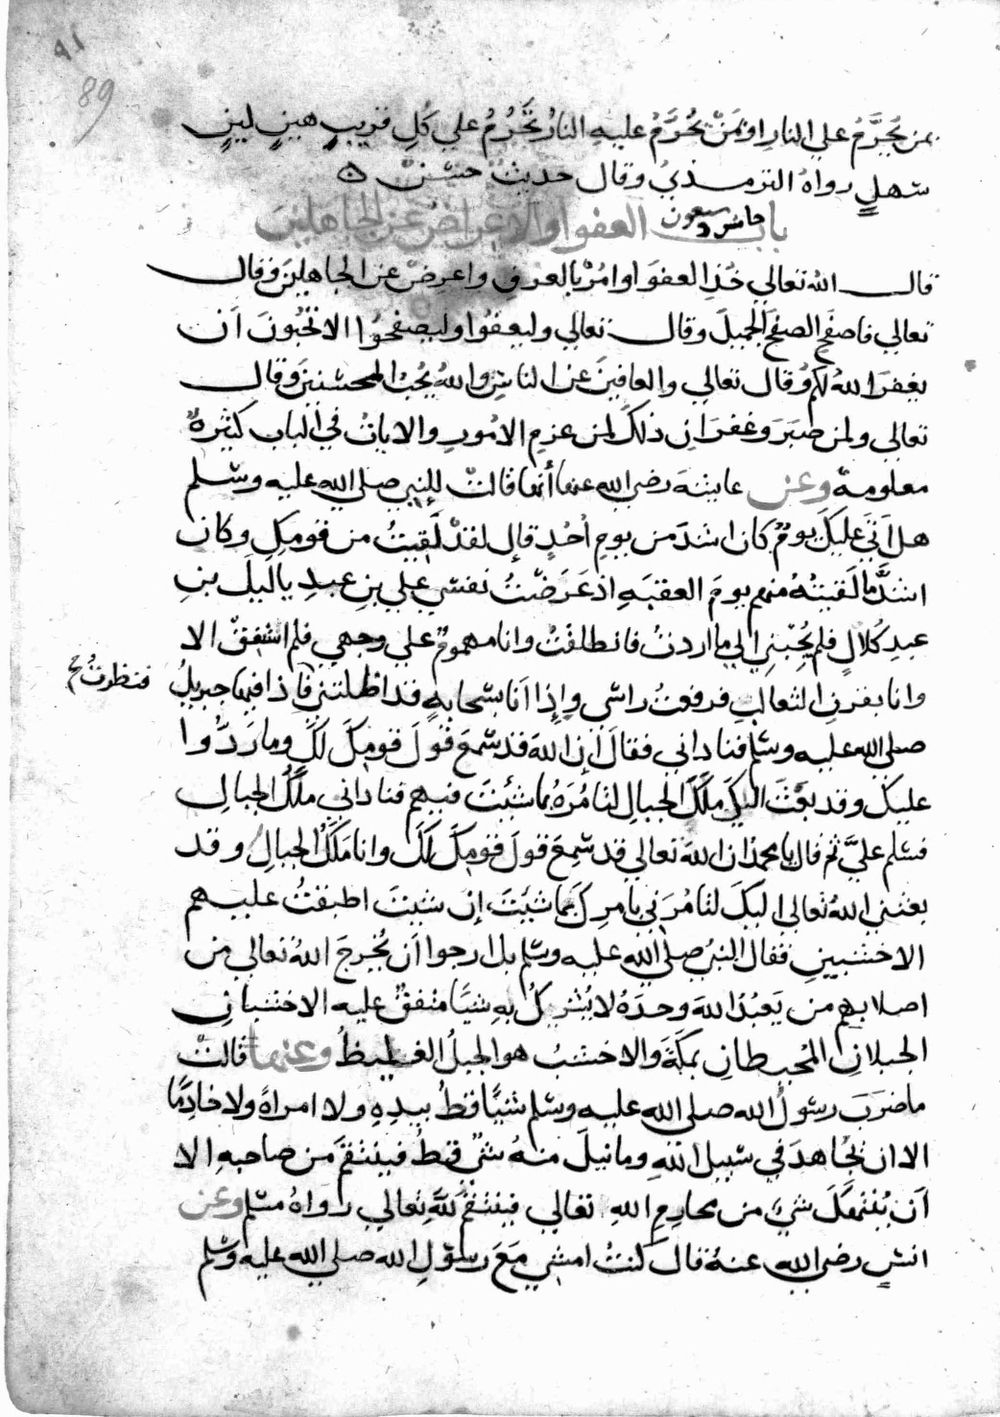 ٩١
89
بمن يَحْرُمُ على النارِ اوْ بمَنْ تَحْرُمُ عليهِ النارُ تَحْرُمُ علي كُلِ قريبٍ هينٍ لينٍ
سَهلٍ رواهُ الترمذيُ وقال حديثٌ حسَنٌ ه
باب العفو اوالاعراض عن الجاهلين
قال الله تعالى خُذِ العفوَ اوامُرْ بالعرفِ واعرضْ عن الجاهلينَ وقال
تعالي فاصفحِ الصفحَ الجميلَ وقال تعالي وليعفُوا وليصفحُوا الا تحُبُونَ اَن
يغفرَ اللهُ لكم وُقال تعالي والعافينَ عن الناسِ واللهُ يُحبُ المحسنينَ وقال
تعالي ولمن صبَرَ وغفرَ اِن ذلكَ لمن عزمِ الامُورِ والاياتُ في الباب كثيرةٌ
معلومة وعن عايشَةَ رضي الله عنها أنها قالتْ للنبي صلي الله عليه وسلم
هل أتَي عليكَ يومٌ كان اشدَ من يومِ اُحُدٍ قال لقدْ لَقِيتُ من قومكِ وكان
اشدَّ ما لَقيتُهُ منهم يومَ العقبَهِ اذ عَرَضْتُ نفسي علي بنِ عبدِ ياليلَ بنِ
عبدِ كُلالٍ فلم يُجبْنِي الي ما اردتُ فانطلقتُ وانا مهمومٌ علي وجهي فلم استَفِقْ الا
وانا بقرنِ الثعالبِ فرفعتُ راسي وإِذا اَنا بسَحابةٍ قد اظلتني فاذا فيها جبريلُ
فنظرتُ
صلي الله عليه وسلم فناداني فقالَ اِن اللهَ قد سمعَ قولَ قومِكَ لكَ وما رَدُّوا
عليكَ وقد بعَثَ اليكَ مَلَكَ الجبالِ لتامُرَهُ بما شئتَ فيهم فناداني ملَكُ الجبالِ
فسلم عليَّ ثم قال يا محمدُ ان اللهَ تعالي قد سَمِعَ قولَ قومِكَ لكَ وانا مَلَكُ الجبالِ وقد
بعثني اللهُ تعالي اليكَ لتامُرَني بامرِكَ بما شيْتَ اِن شيتَ اطبقتُ عليهم
الاخشبينِ فقال النبيُ صلي الله عليه وسلم بل ارجوا اَن يُخرجَ اللهُ تعالي من
اصلابهم من يَعبُدُ اللهَ وحدَهُ لا يُشركُ بهِ شيًا متفقٌ عليه الاخشبانِ
الجبلانِ المُحيطانِ بمكَّةَ والاخشبُ هو الجبلُ الغليظُ وعنها قالتْ
ما ضربَ رسولُ الله صلي الله عليه وسلم شيًا قطُ بيدِهِ ولا امراةً ولا خادِمًا
الا ان يُجاهدَ في سبيل اللهِ وما نيلَ منهُ شيٌ قطُ فينتقمَ من صاحبهِ الا
اَن يُنتهكَ شيٌ من محارمِ اللهِ تعالي فينتقمُ للهِ تعالي رواهُ مسلم وعن
انسٍ رضي الله عنهُ قال كنتُ امشي مَعَ رسولِ الله صلي الله عليه وسلم